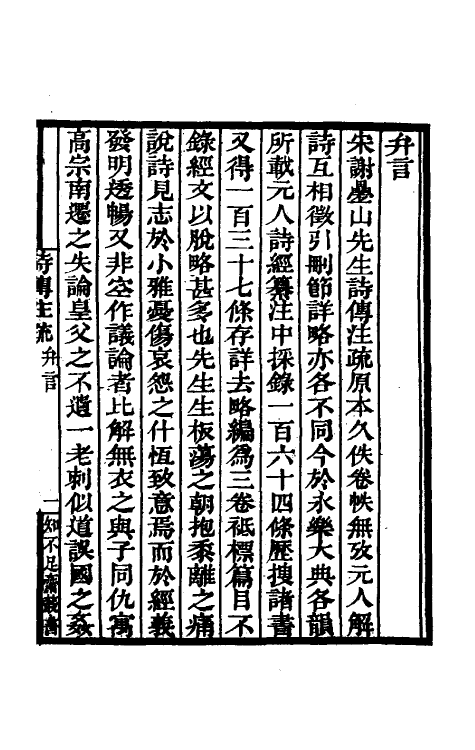 弁言
宋謝疊山先生詩傳注疏原本久佚卷帙無攷元人解
詩互相徵引刪節詳略亦各不同今於永樂大典各韻
所載元人詩經纂注中採錄一百六十四條歷搜諸書
又得一百三十七條存詳去略編為三卷祗標篇目不
錄經文以脫略甚多也先生生板蕩之朝抱黍離之痛
說詩見志於小雅憂傷哀怨之什恆致意焉而於經義
發明透暢又非空作議論者比解無衣之與子同仇寓
高宗南遷之失論皇父之不遺一老刺似道誤國之姦
詩傳注疏 弁言
一 知不足齋叢書